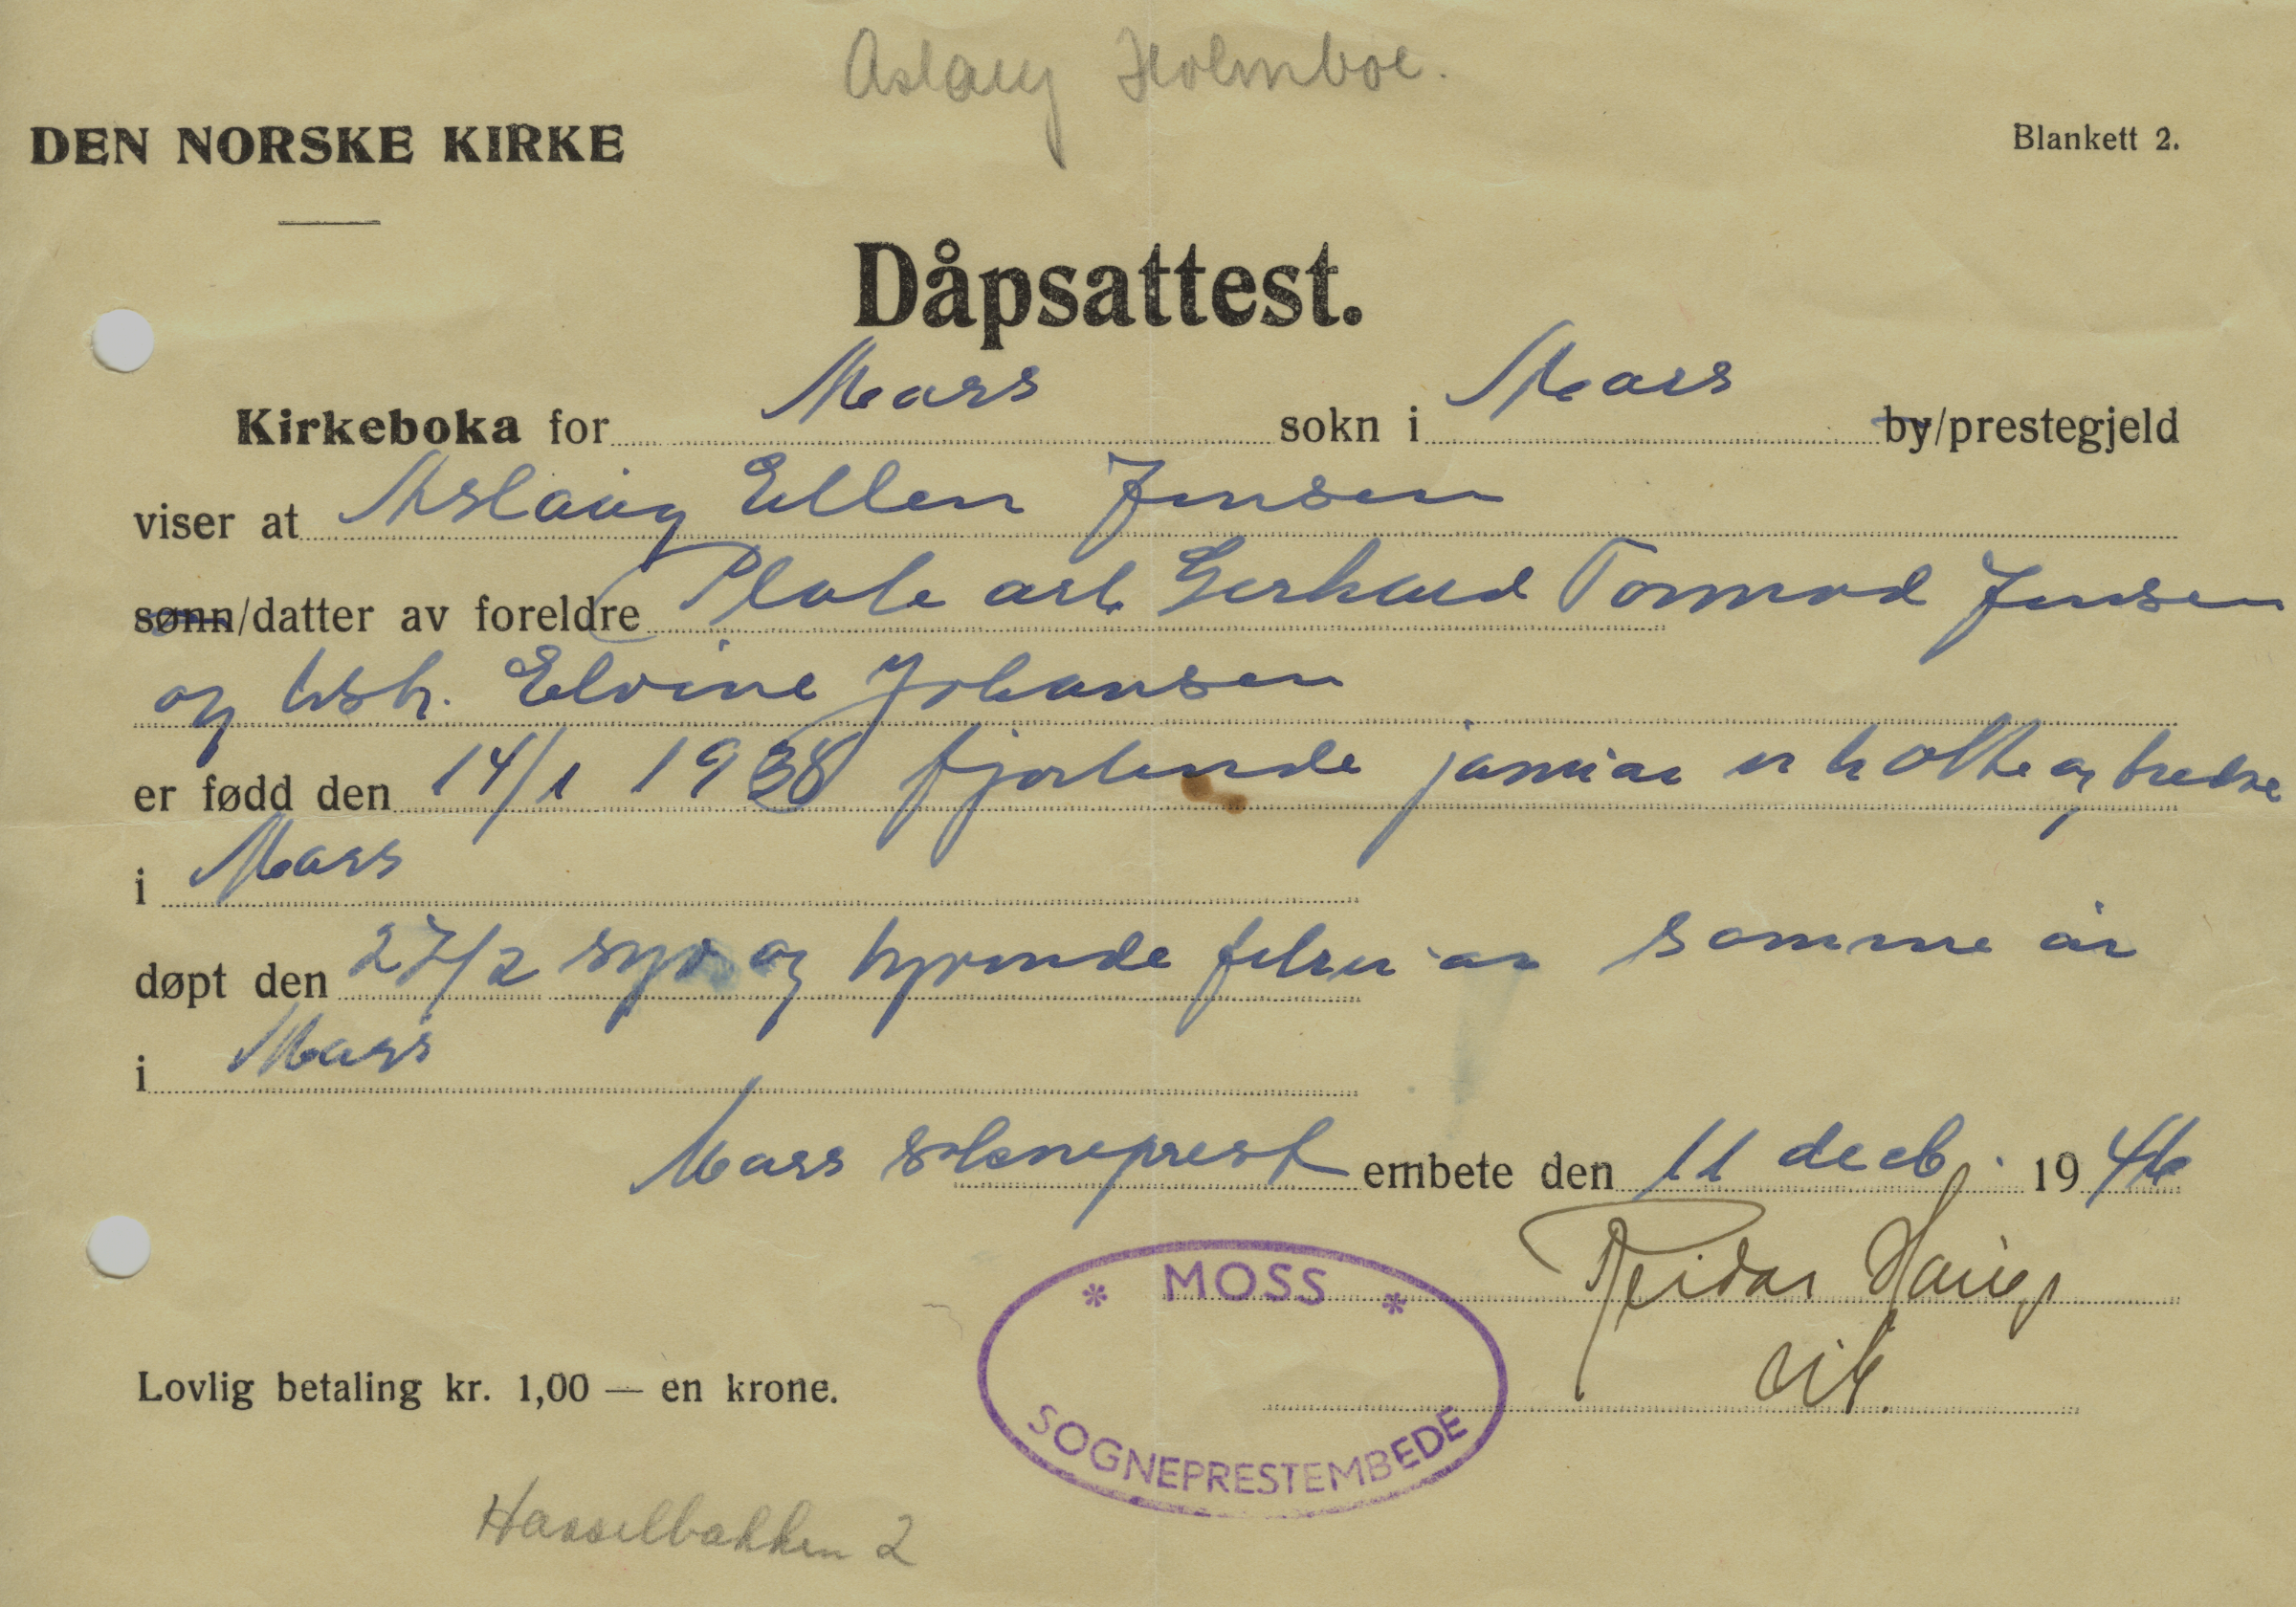 Aslaug Holmboe.
DEN NORSKE KIRKE
Blankett 2.
Dåpsattest.
Kirkeboka for Moss sokn i Moss by/prestegjeld
viser at Aslaug Ellen Jensen
sønn/datter av foreldre Plate arb. Gerhard Tormod Jensen
og hstr. Elvine Johansen
er fødd den 14/1 1938 fjortende januar er tr otte og tredve
i Moss
døpt den 27/2 syv og tyvende februar samme år
i Moss
Moss sokneprest embete den 11 decb. 1946
Reidar Haug
vik.
* MOSS *
SOGNEPRESTEMBEDE
Lovlig betaling kr. 1,00 — en krone.
Hasselbakken 2